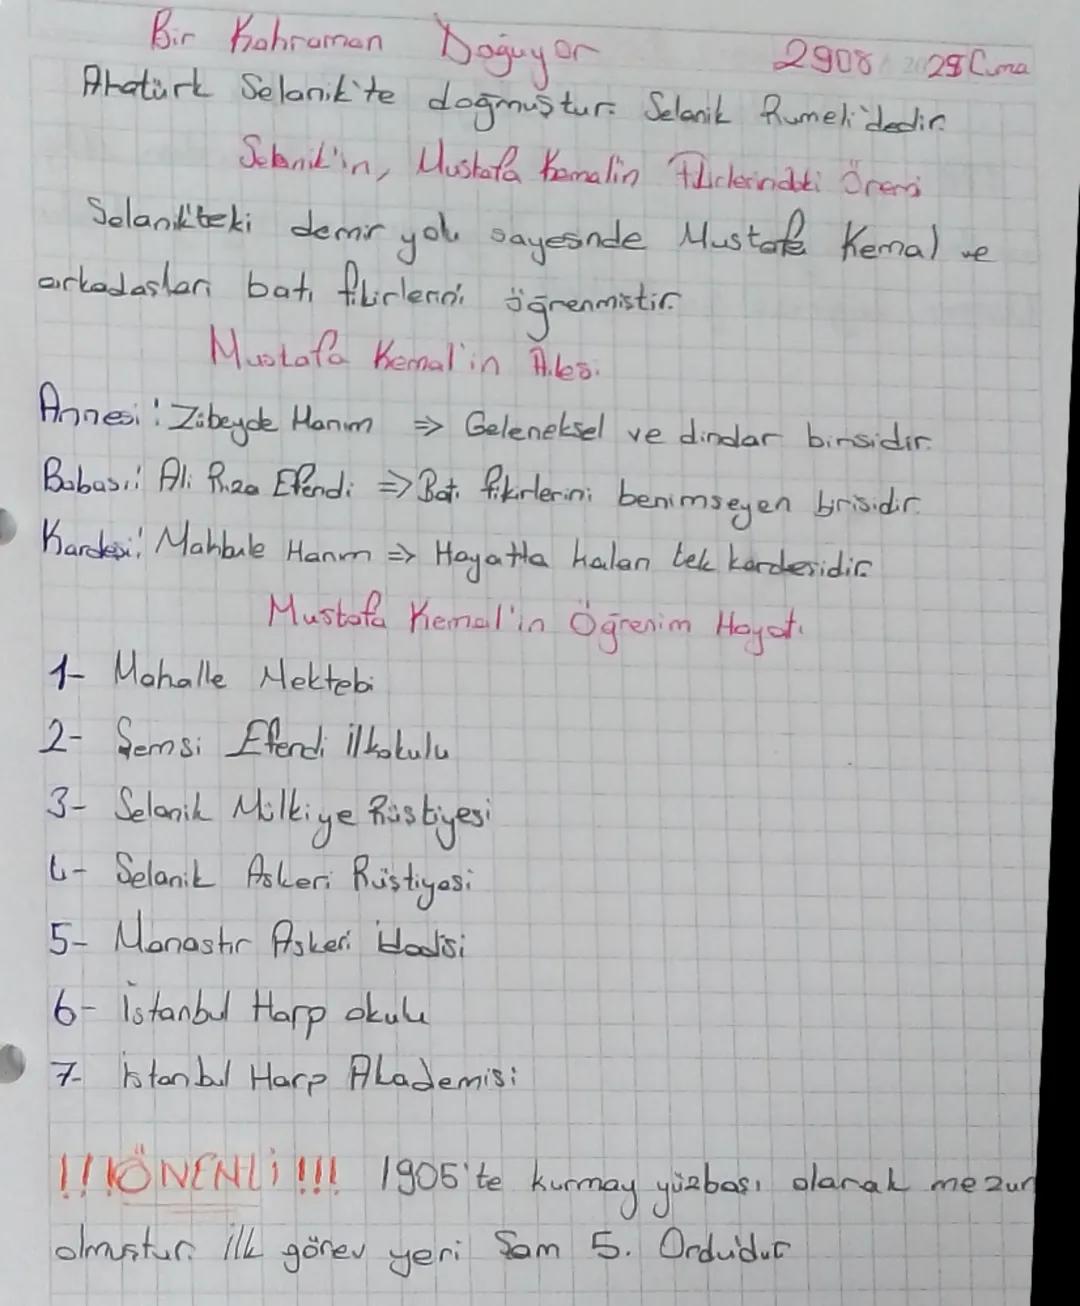 Bir Kahraman Doğuyor
Atatürk Selanik'te doğmuştur. Selanik Rumeli'dedir.
Selanik'in, Mustafa Kemalin Fikirlerindeki Önemi
Selanik'teki demir yolu sayesinde Mustafa Kemal ve
arkadaşları batı fikirlerini öğrenmistir.
Mustafa Kemal'in Ailesi
Annesi: Zübeyde Hanım ⇒ Geleneksel ve dindar birisidir.
Babası: Ali Rıza Efendi ⇒ Batı fikirlerini benimseyen birisidir.
Kardeşi: Mahbule Hanım ⇒ Hayatta kalan tek kardesidir.
Mustafa Kemal'in Öğrenim Hayatı
1- Mahalle Mektebi
2- Şemsi Efendi ilkokulu
3- Selanik Mülkiye Rüştiyesi
4- Selanik Askeri Rüştiyesi
5- Manastır Askeri İdadisi
6- İstanbul Harp okulu
7- İstanbul Harp Akademisi
!!!ÖNEMLİ!!! 1905'te kurmay yüzbaşı olarak mezun
olmuştur. İlk görev yeri Şam 5. Ordudur